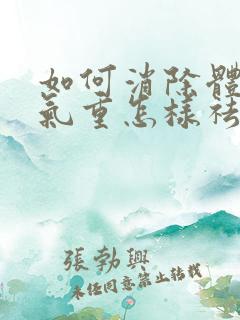 如何消除體
氣重怎樣祛
張勃興
未经同意禁止转载